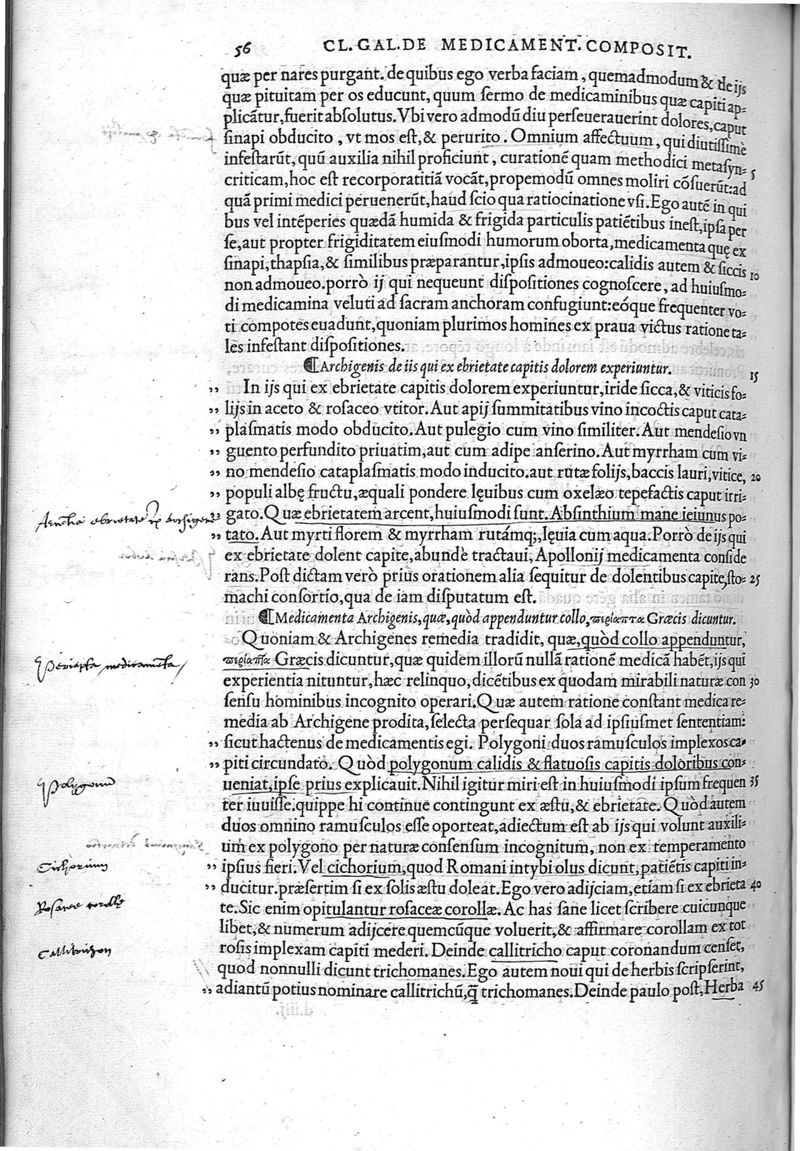 56 CL. GAL. DE MEDICAMENT. COMPOSIT.
quæ per nares purgant. de quibus ego verba faciam, quemadmodum & de ijs
quæ pituitam per os educunt, quum sermo de medicaminibus quæ capiti ap-
plicãtur, fuerit absolutus. Vbi vero admodũ diu perseuerauerint dolores, caput
sinapi obducito, vt mos est, & perurito. Omnium affectuum, qui diutissimè
infestarũt, quũ auxilia nihil proficiunt, curationẽ quam methodici metasyn- 5
criticam, hoc est recorporatitiã vocãt, propemodũ omnes moliri cõsuerũt: ad
quã primi medici peruenerũt, haud scio qua ratiocinatione vsi. Ego autẽ in qui
bus vel intẽperies quædã humida & frigida particulis patiẽtibus inest, ipsa per
se, aut propter frigiditatem eiusmodi humorum oborta, medicamenta quę ex
sinapi, thapsia, & similibus præparantur, ipsis admoueo: calidis autem & siccis 10
non admoueo. porrò ij qui nequeunt dispositiones cognoscere, ad huiusmo-
di medicamina veluti ad sacram anchoram confugiunt: eóque frequenter vo-
ti compotes euadunt, quoniam plurimos homines ex praua victus ratione ta-
les infestant dispositiones.
¶ Archigenis de iis qui ex ebrietate capitis dolorem experiuntur. 15
,, In ijs qui ex ebrietate capitis dolorem experiuntur, iride sicca, & viticis fo-
,, lijs in aceto & rosaceo vtitor. Aut apij summitatibus vino incoctis caput cata-
,, plasmatis modo obducito. Aut pulegio cum vino similiter. Aut mendesio vn
,, guento perfundito priuatim, aut cum adipe anserino. Aut myrrham cum vi-
,, no mendesio cataplasmatis modo inducito. aut rutæ folijs, baccis lauri, vitice, 20
,, populi albę fructu, æquali pondere lęuibus cum oxelæo tepefactis caput irri-
,, gato. Quæ ebrietatem arcent, huiusmodi sunt. Absinthium mane ieiunus po-
,, tato. Aut myrti florem & myrrham rutámq;, lęuia cum aqua. Porrò de ijs qui
ex ebrietate dolent capite, abundè tractaui, Apollonij medicamenta conside
rans. Post dictam verò prius orationem alia sequitur de dolentibus capite, sto- 25
machi consortio, qua de iam disputatum est.
¶ Medicamenta Archigenis, quæ, quòd appenduntur collo, περίαπτα Græcis dicuntur.
Quoniam & Archigenes remedia tradidit, quæ, quòd collo appenduntur,
περίαπτα Græcis dicuntur, quæ quidem illorũ nullã rationẽ medicã habẽt, ijs qui
experientia nituntur, hæc relinquo, dicẽtibus ex quodam mirabili naturæ con 30
sensu hominibus incognito operari. Quæ autem ratione constant medica re-
media ab Archigene prodita, selecta persequar sola ad ipsiusmet sententiam:
,, sicut hactenus de medicamentis egi. Polygoni duos ramusculos implexos ca-
,, piti circundato. Quòd polygonum calidis & flatuosis capitis doloribus con-
ueniat, ipse prius explicauit. Nihil igitur miri est in huiusmodi ipsum frequen 35
ter iuuisse. quippe hi continue contingunt ex æstu, & ebrietate. Quòd autem
duos omnino ramusculos esse oporteat, adiectum est ab ijs qui volunt auxili-
um ex polygono per naturæ consensum incognitum, non ex temperamento
,, ipsius fieri. Vel cichorium, quod Romani intybi olus dicunt, patiẽtis capiti in-
,, ducitur. præsertim si ex solis æstu doleat. Ego vero adijciam, etiam si ex ebrieta 40
te. Sic enim opitulantur rosaceæ corollæ. Ac has sane licet scribere cuicunque
libet, & numerum adijcere quemcũque voluerit, & affirmare corollam ex tot
rosis implexam capiti mederi. Deinde callitricho caput coronandum censet,
quod nonnulli dicunt trichomanes. Ego autem noui qui de herbis scripserint,
,, adiantũ potius nominare callitrichũ, q̃ trichomanes. Deinde paulo post, Herba 45
Periapta medicamẽta
Polygonũ
Cichorium
Rosaceæ corollę
Callitrichon